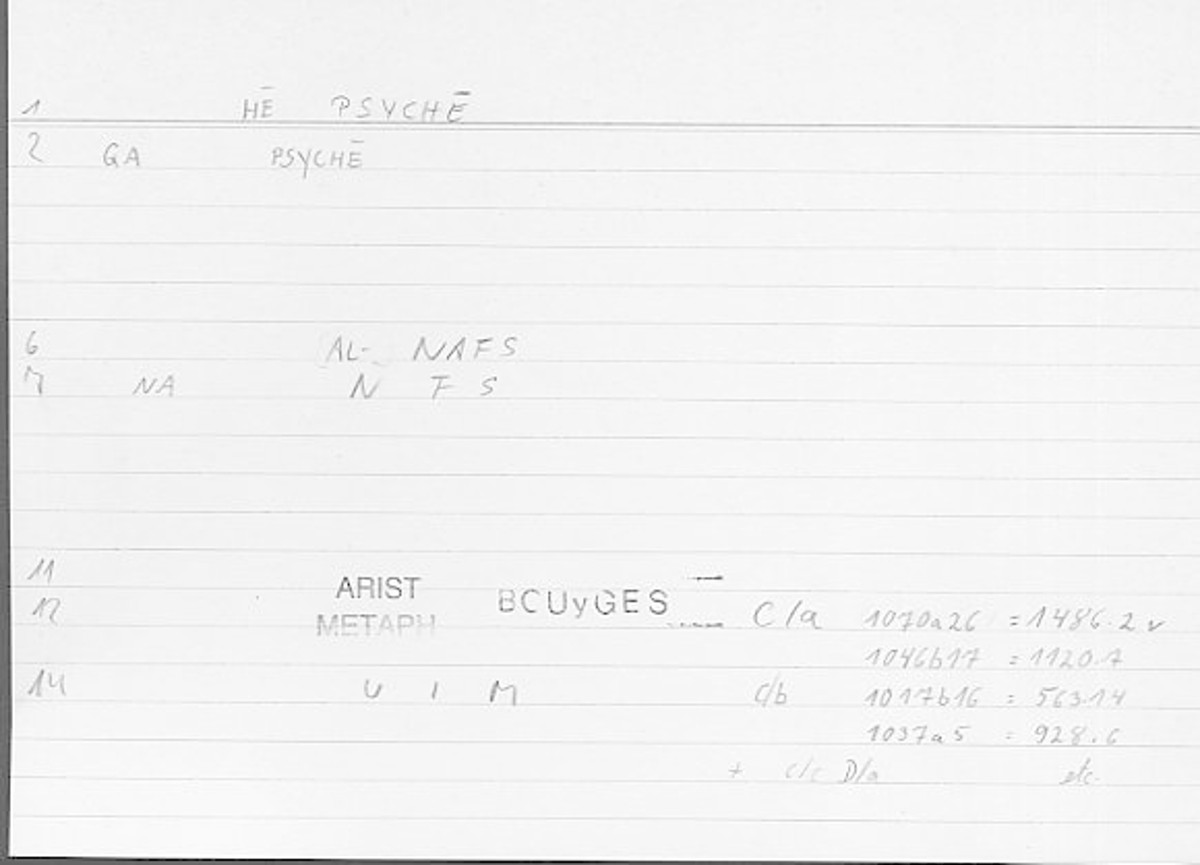 1 HĒ PSYCHĒ
2 GA PSYCHĒ
6 AL- NAFS
7 NA N F S
11 ARIST BCUyGES
12 METAPH C/a 1070a26 = 1486.2 v
1046b17 = 1120.7
14 U I M c/b 1017b16 = 563.14
1037a5 = 928.6
+ c/c D/a etc.